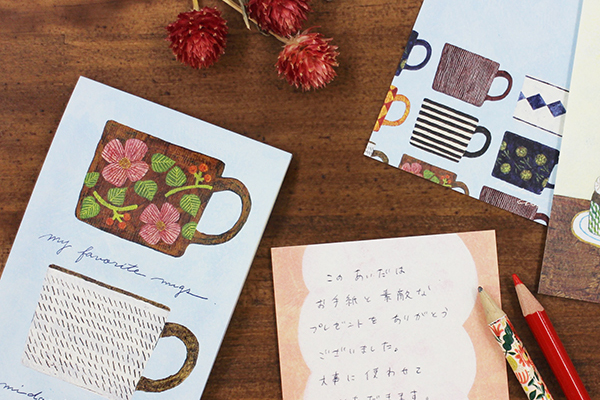 my favorite mugs.
このあいだは
お手紙と素敵な
プレゼントをありがとう
ございました。
大事に使わせて
いただきます。